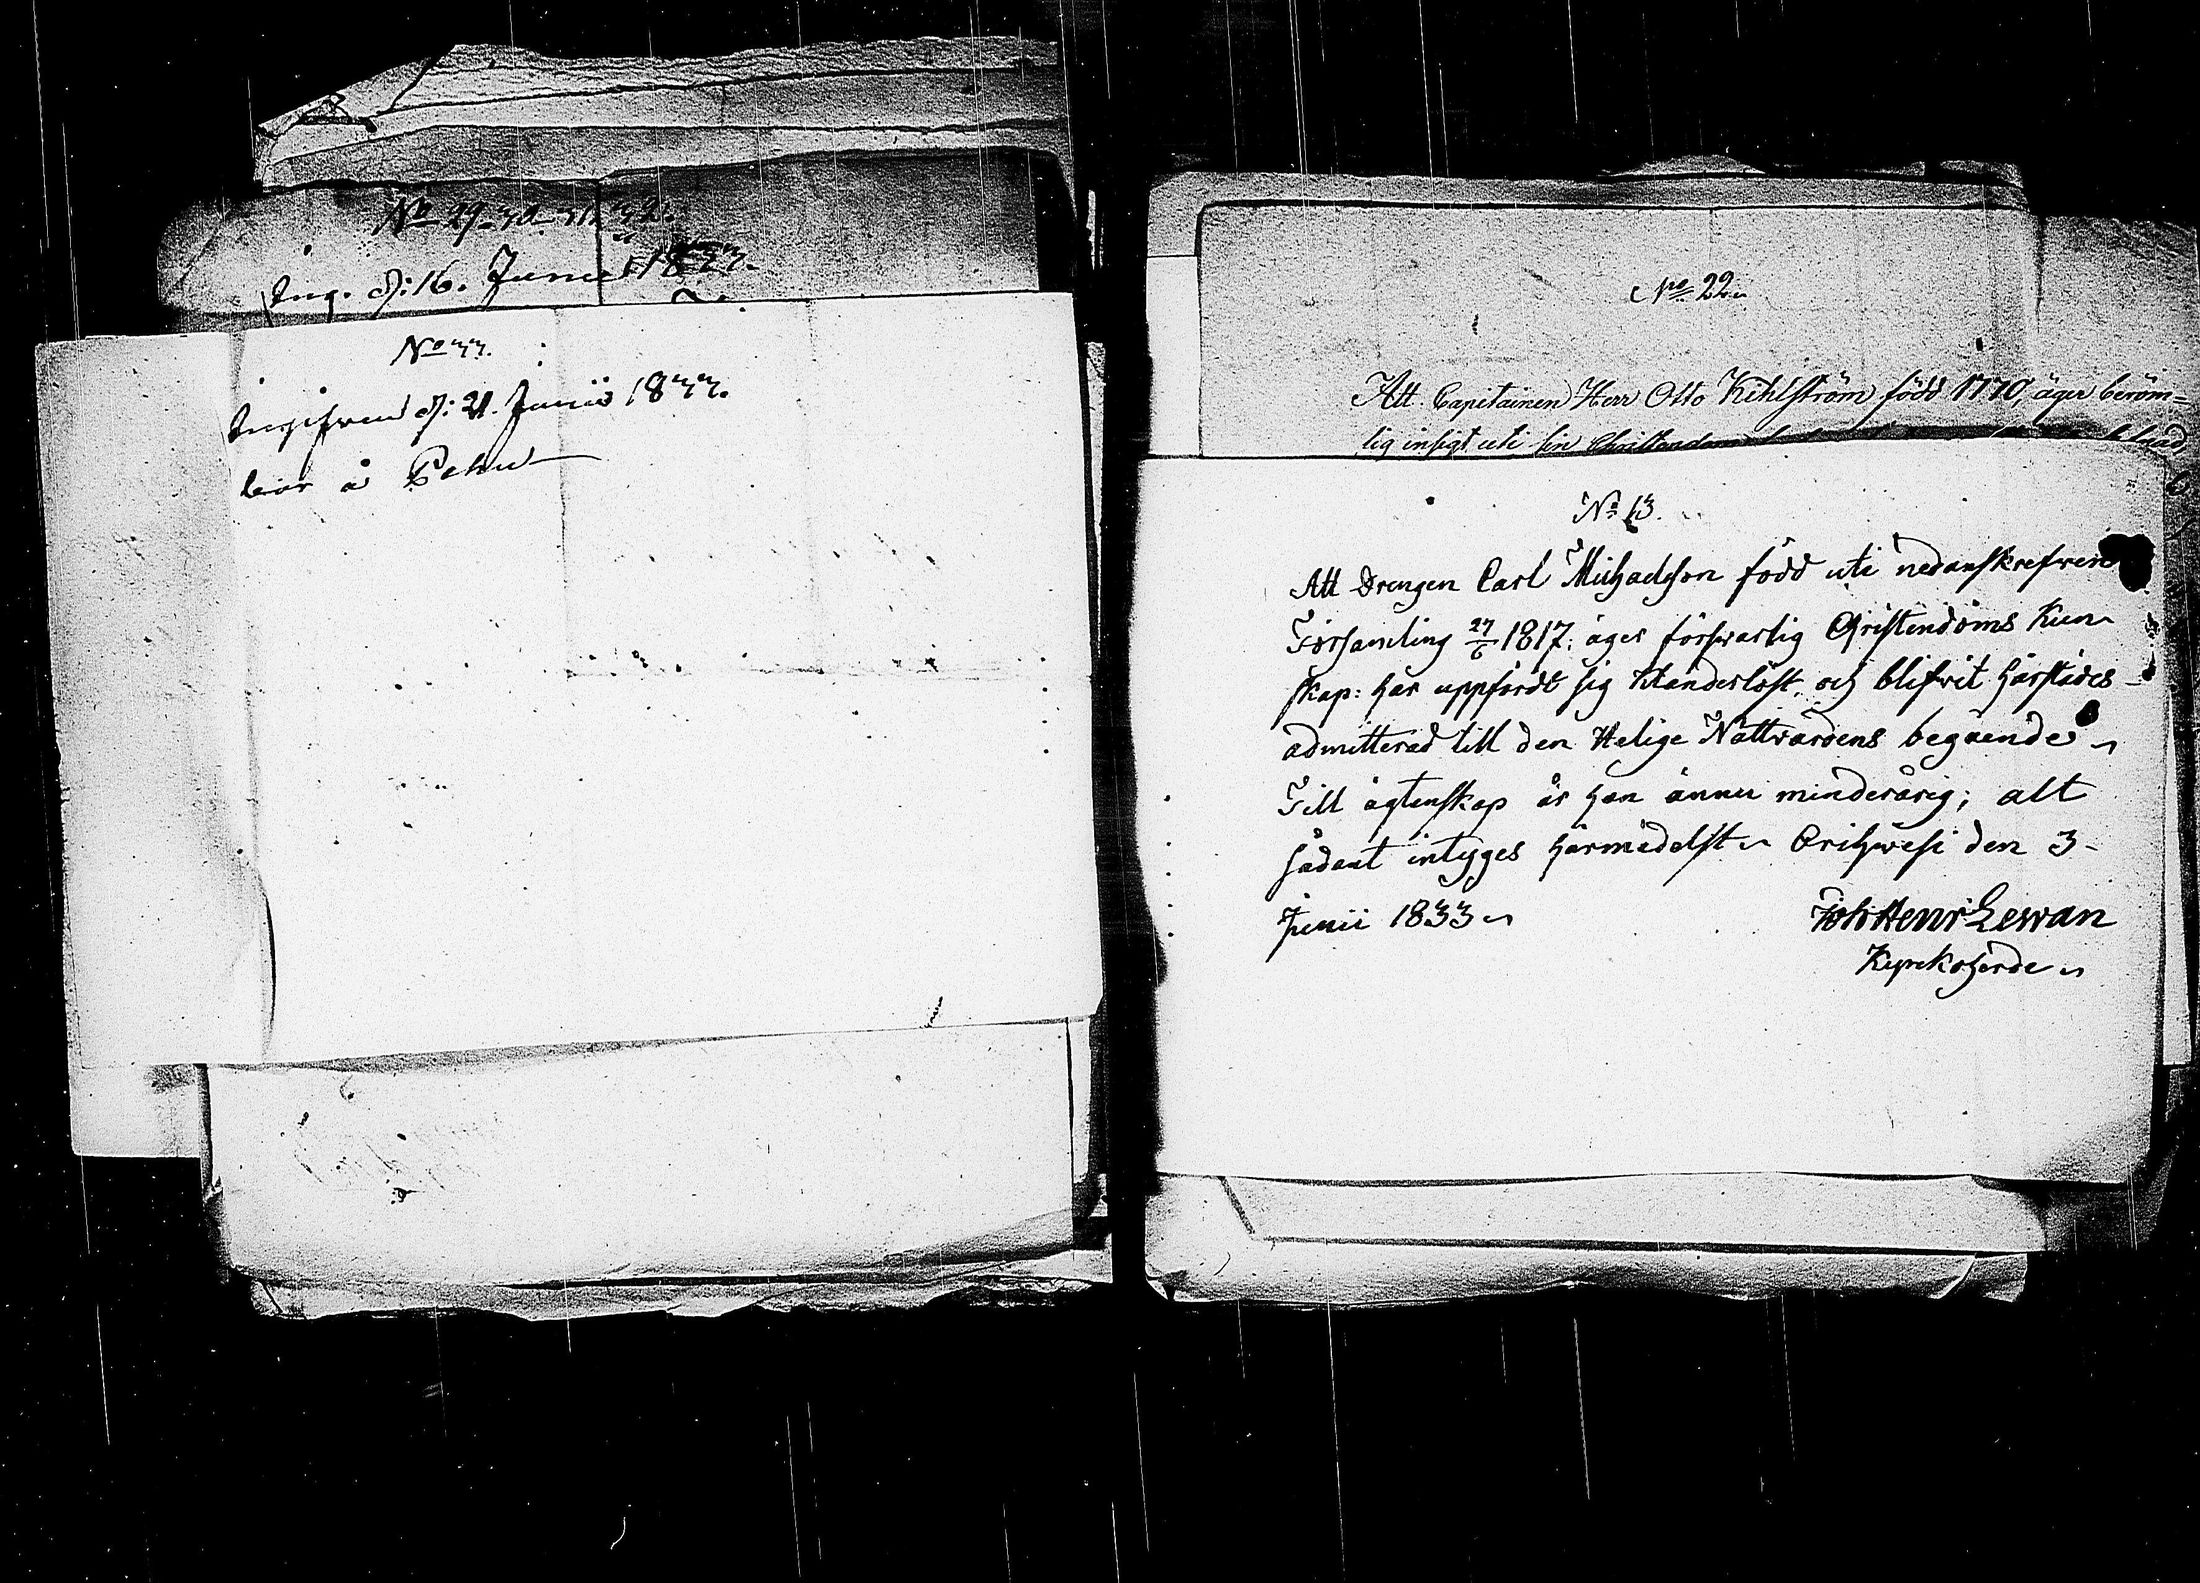 No 29-30-31-32.
Ing. d: 16. Junii 1833.
No 33.
Ingifven d: 21. Junii 1833.
No 22
Att Capitainen Herr Otto Kihlström född 1770, äger beröm=
lig insigt uti sin Christendom
No 13.
Att Drengen Carl Michaelsson född uti nedanskrefven
Församling 27/6 1817; äger försvarlig Christendoms Kun
skap: har uppfördt sig klanderlöst, och blifvit härstädes
admitterad till den Helige Nattvardens begående
Till ägtenskap är han ännu minderårig; alt
sådant intyges härmedelst Orihvesi den 3
Junii 1833
Joh Henr Lewan
Kyrkoherde